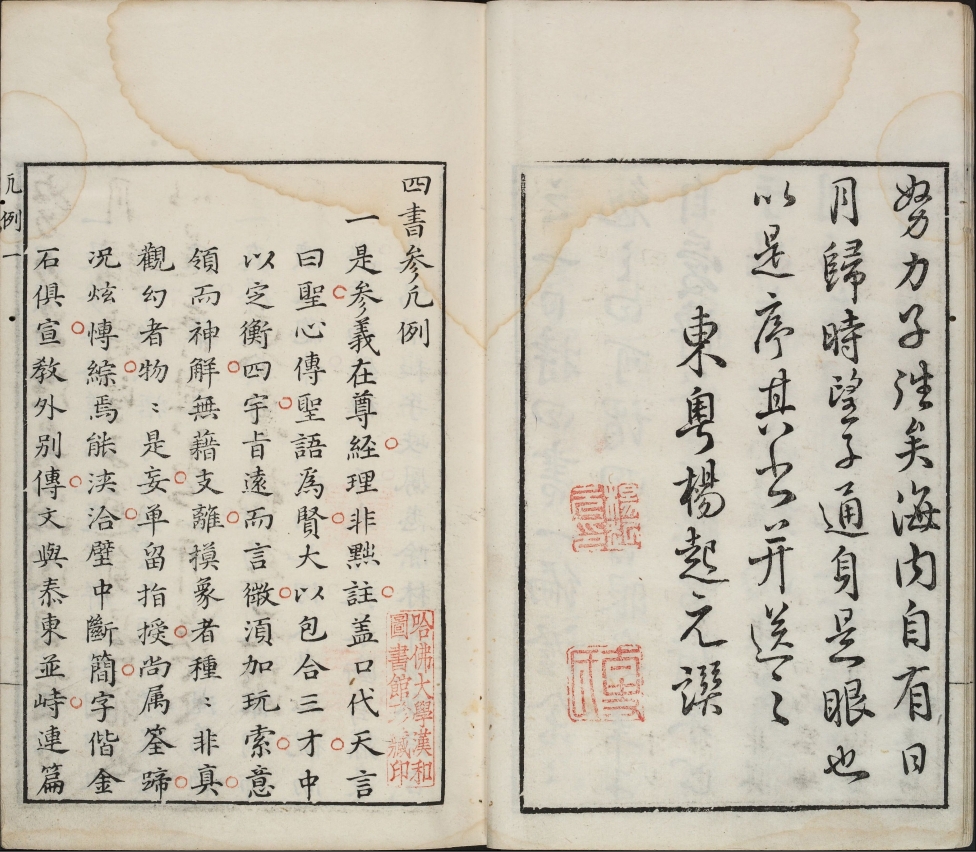 努力子往矣海内自有日
月歸時望子通身是眼也
以是序其書并送之
東粵楊起元譔
四書參凡例
一是參義在尊經理非黜註蓋口代天言
曰聖心傳聖語為賢大以包合三才中
以定衡四字旨遠而言微湏加玩索意
領而神解無藉支離摸象者種〻非真
觀幻者物〻是妄單留指授尚属筌蹄
况炫慱綜焉能浹洽壁中斷簡字偕金
石俱宣教外别傳文與泰東並峙連篇
凡例 一
哈佛大學漢和
圖書館珍藏印